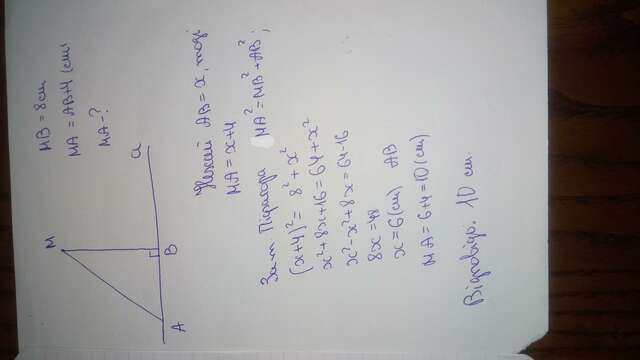 M
a
A
B
MB = 8cm
MA = AB+4 (cm)
MA - ?
Нехай AB = x, тоді
MA = x+4
За т. Піфагора MA² = MB² + AB²;
(x+4)² = 8² + x²
x² + 8x + 16 = 64 + x²
x² - x² + 8x = 64 - 16
8x = 48
x = 6 (cm) AB
MA = 6+4 = 10 (cm)
Відповідь: 10 cm.